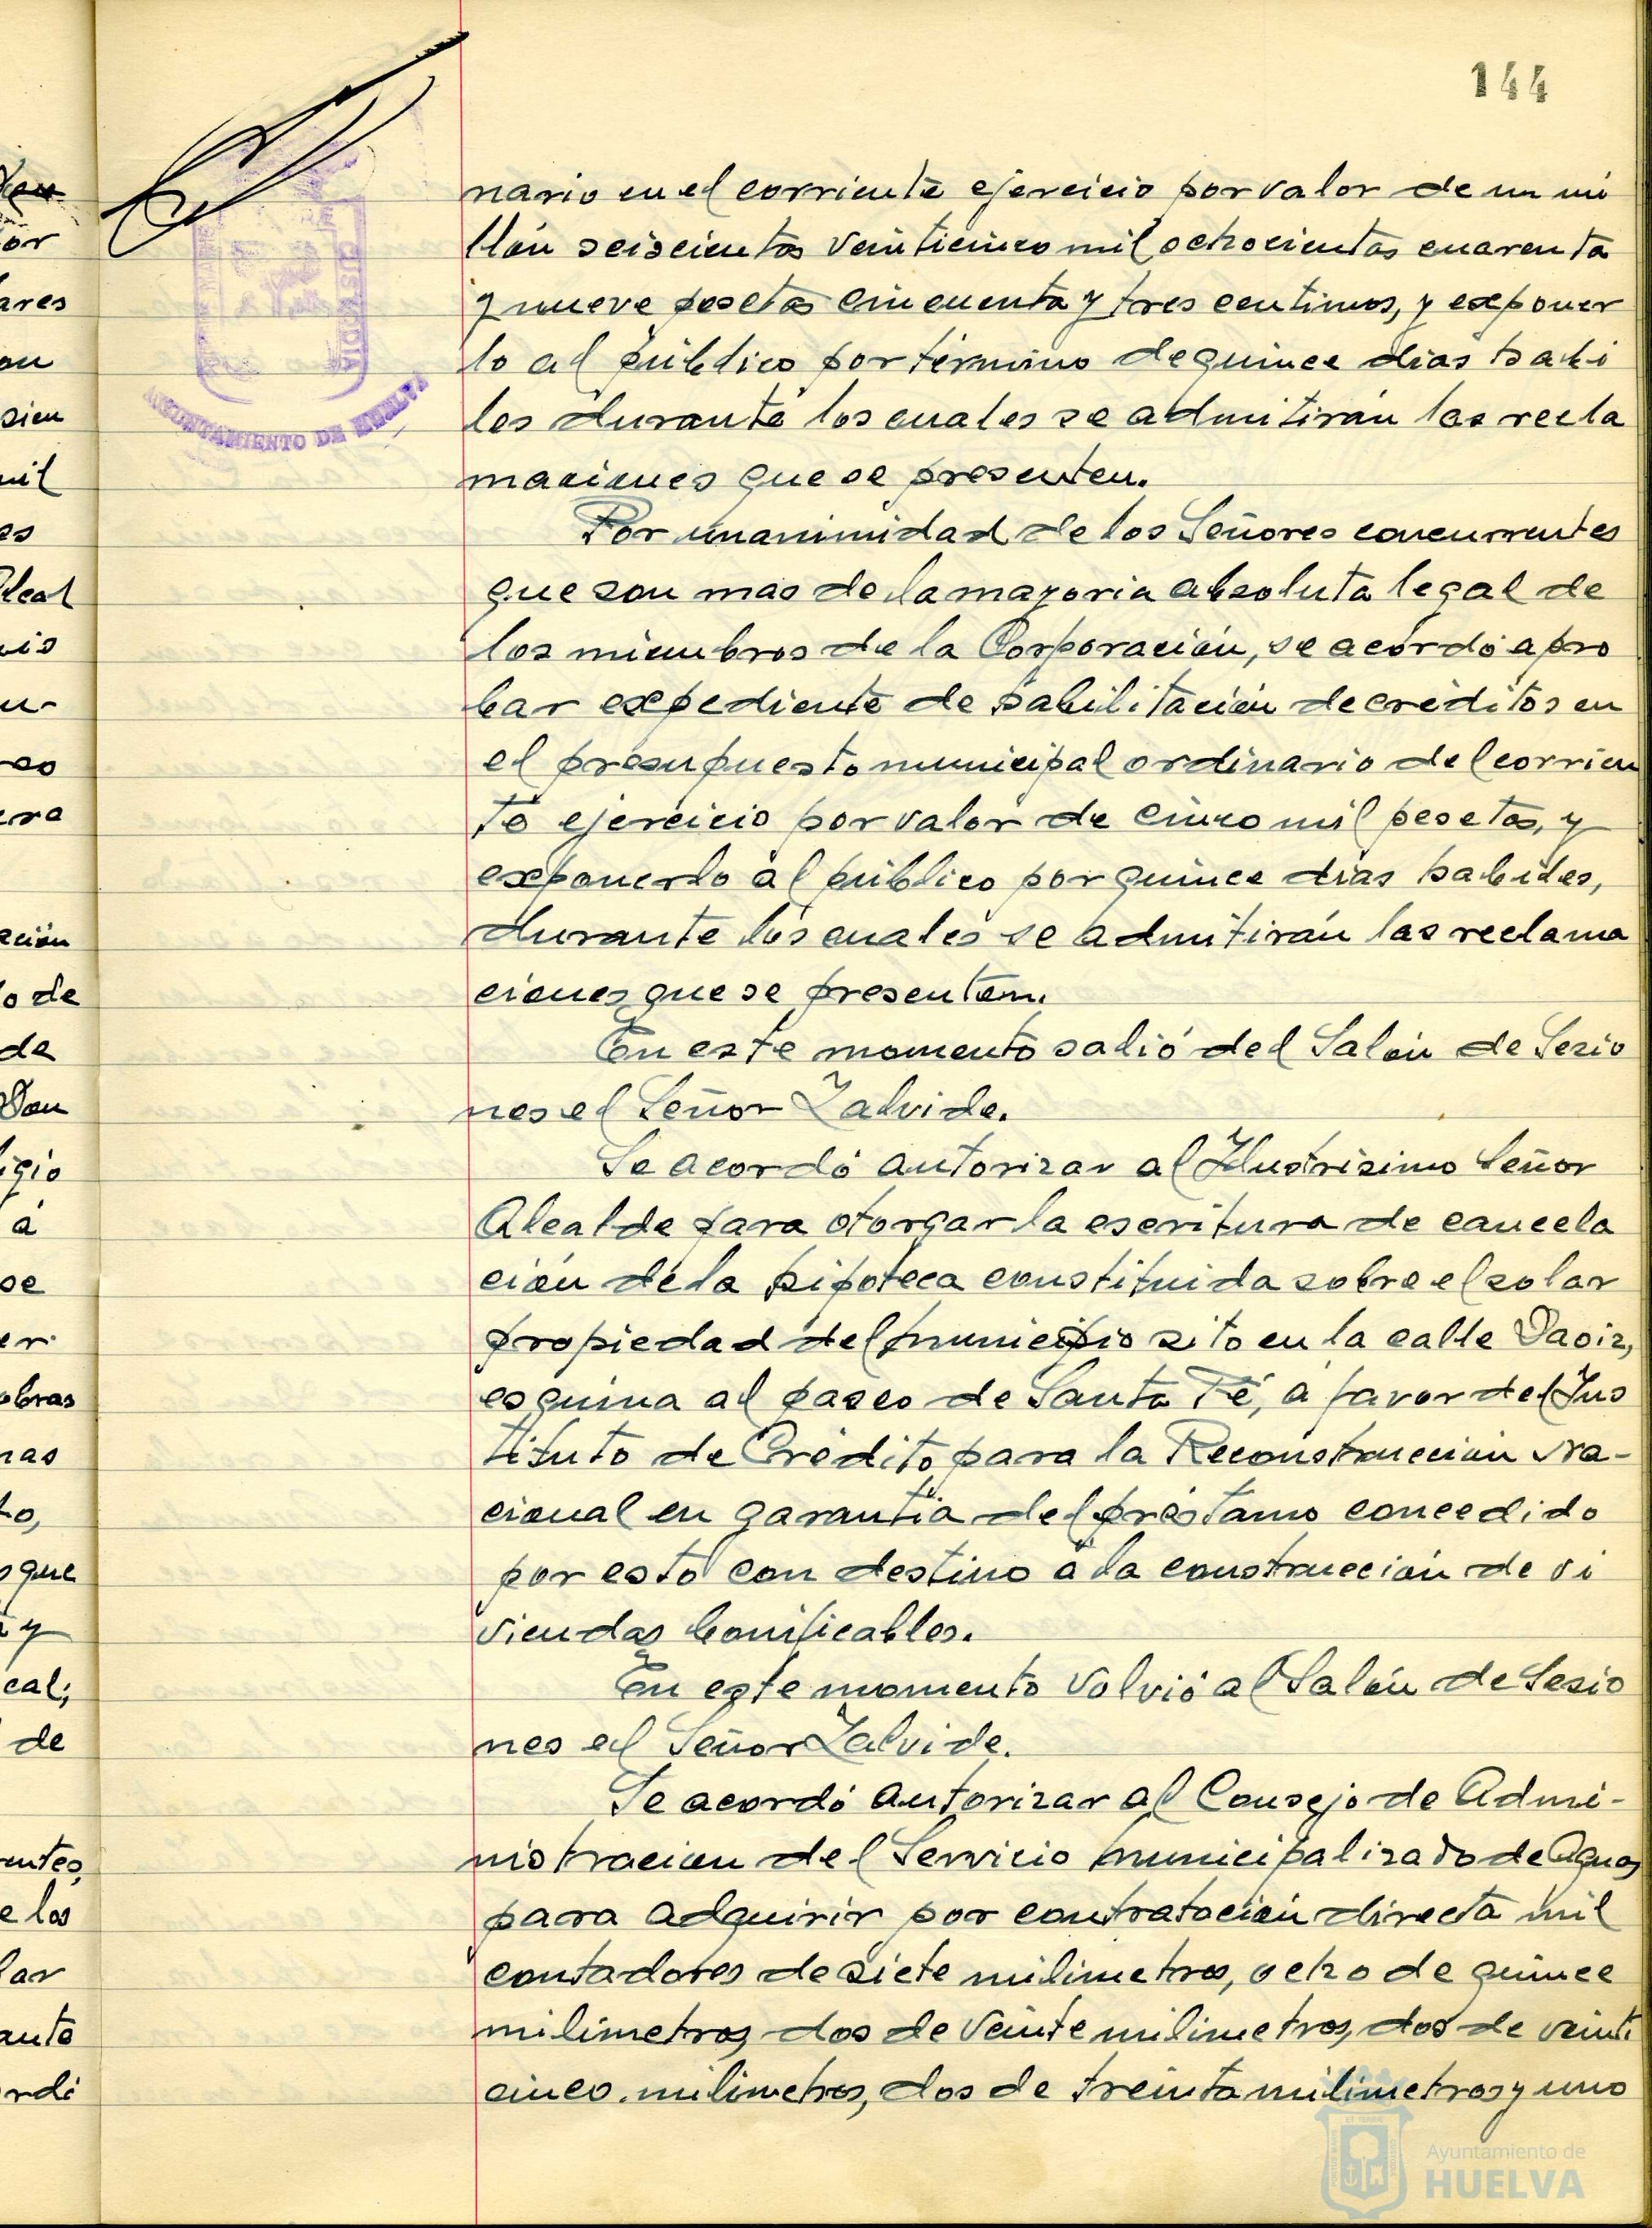 144
nario en el corriente ejercicio por valor de un mi
llón seiscientas veinticinco mil ochocientas cuarenta
y nueve pesetas cincuenta y tres centimos, y exponer
lo al público por término de quince dias habi
les durante los cuales se admitirán las recla
maciones que se presenten.
Por unanimidad de los Señores concurrentes
que son mas de la mayoria absoluta legal de
los miembros de la Corporación, se acordó apro
bar expediente de habilitación de créditos en
el presupuesto municipal ordinario del corrien
te ejercicio por valor de cinco mil pesetas, y
exponerlo al público por quince dias habiles,
durante los cuales se admitirán las reclama
ciones que se presenten.
En este momento salió del Salón de Sesio
nes el Señor Zalvide.
Se acordó autorizar al Ilustrisimo Señor
Alcalde para otorgar la escritura de cancela
ción de la hipoteca constituida sobre el solar
propiedad del municipio sito en la calle Daoiz,
esquina al paseo de Santa Fé, a favor del Ins
tituto de Crédito para la Reconstrucción Na-
cional en garantia del préstamo concedido
por esto con destino a la construcción de vi
viendas bonificables.
En este momento volvió al Salón de Sesio
nes el Señor Zalvide.
Se acordó autorizar al Consejo de Admi-
nistracion del Servicio municipalizado de Aguas
para adquirir por contratación directa mil
contadores de siete milimetros, ocho de quince
milimetros, dos de veinte milimetros, dos de veinti
cinco milimetros, dos de treinta milimetros y uno
AYUNTAMIENTO DE HUELVA
CUSTODIA
Ayuntamiento de
HUELVA